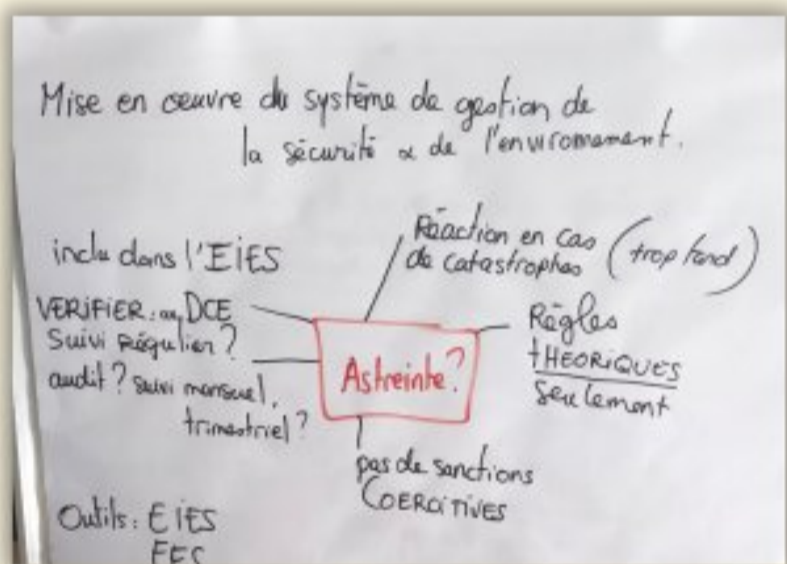 Mise en œuvre du système de gestion de
la sécurité & de l'enviromement.
inclu dans l'EIES
VERIFIER: au DCE
Suivi Régulier?
audit? suivi mensuel,
trimestriel?
Réaction en cas
de catastrophes (trop tard)
Règles
tHEORIQUES
Seulement
Astreinte?
pas de sanctions
COERCITIVES
Outils: EIES